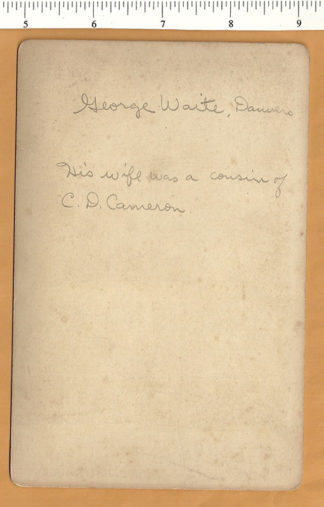 5 6 7 8 9
George Waite, Danvers
His wife was a cousin of
C. D. Cameron.